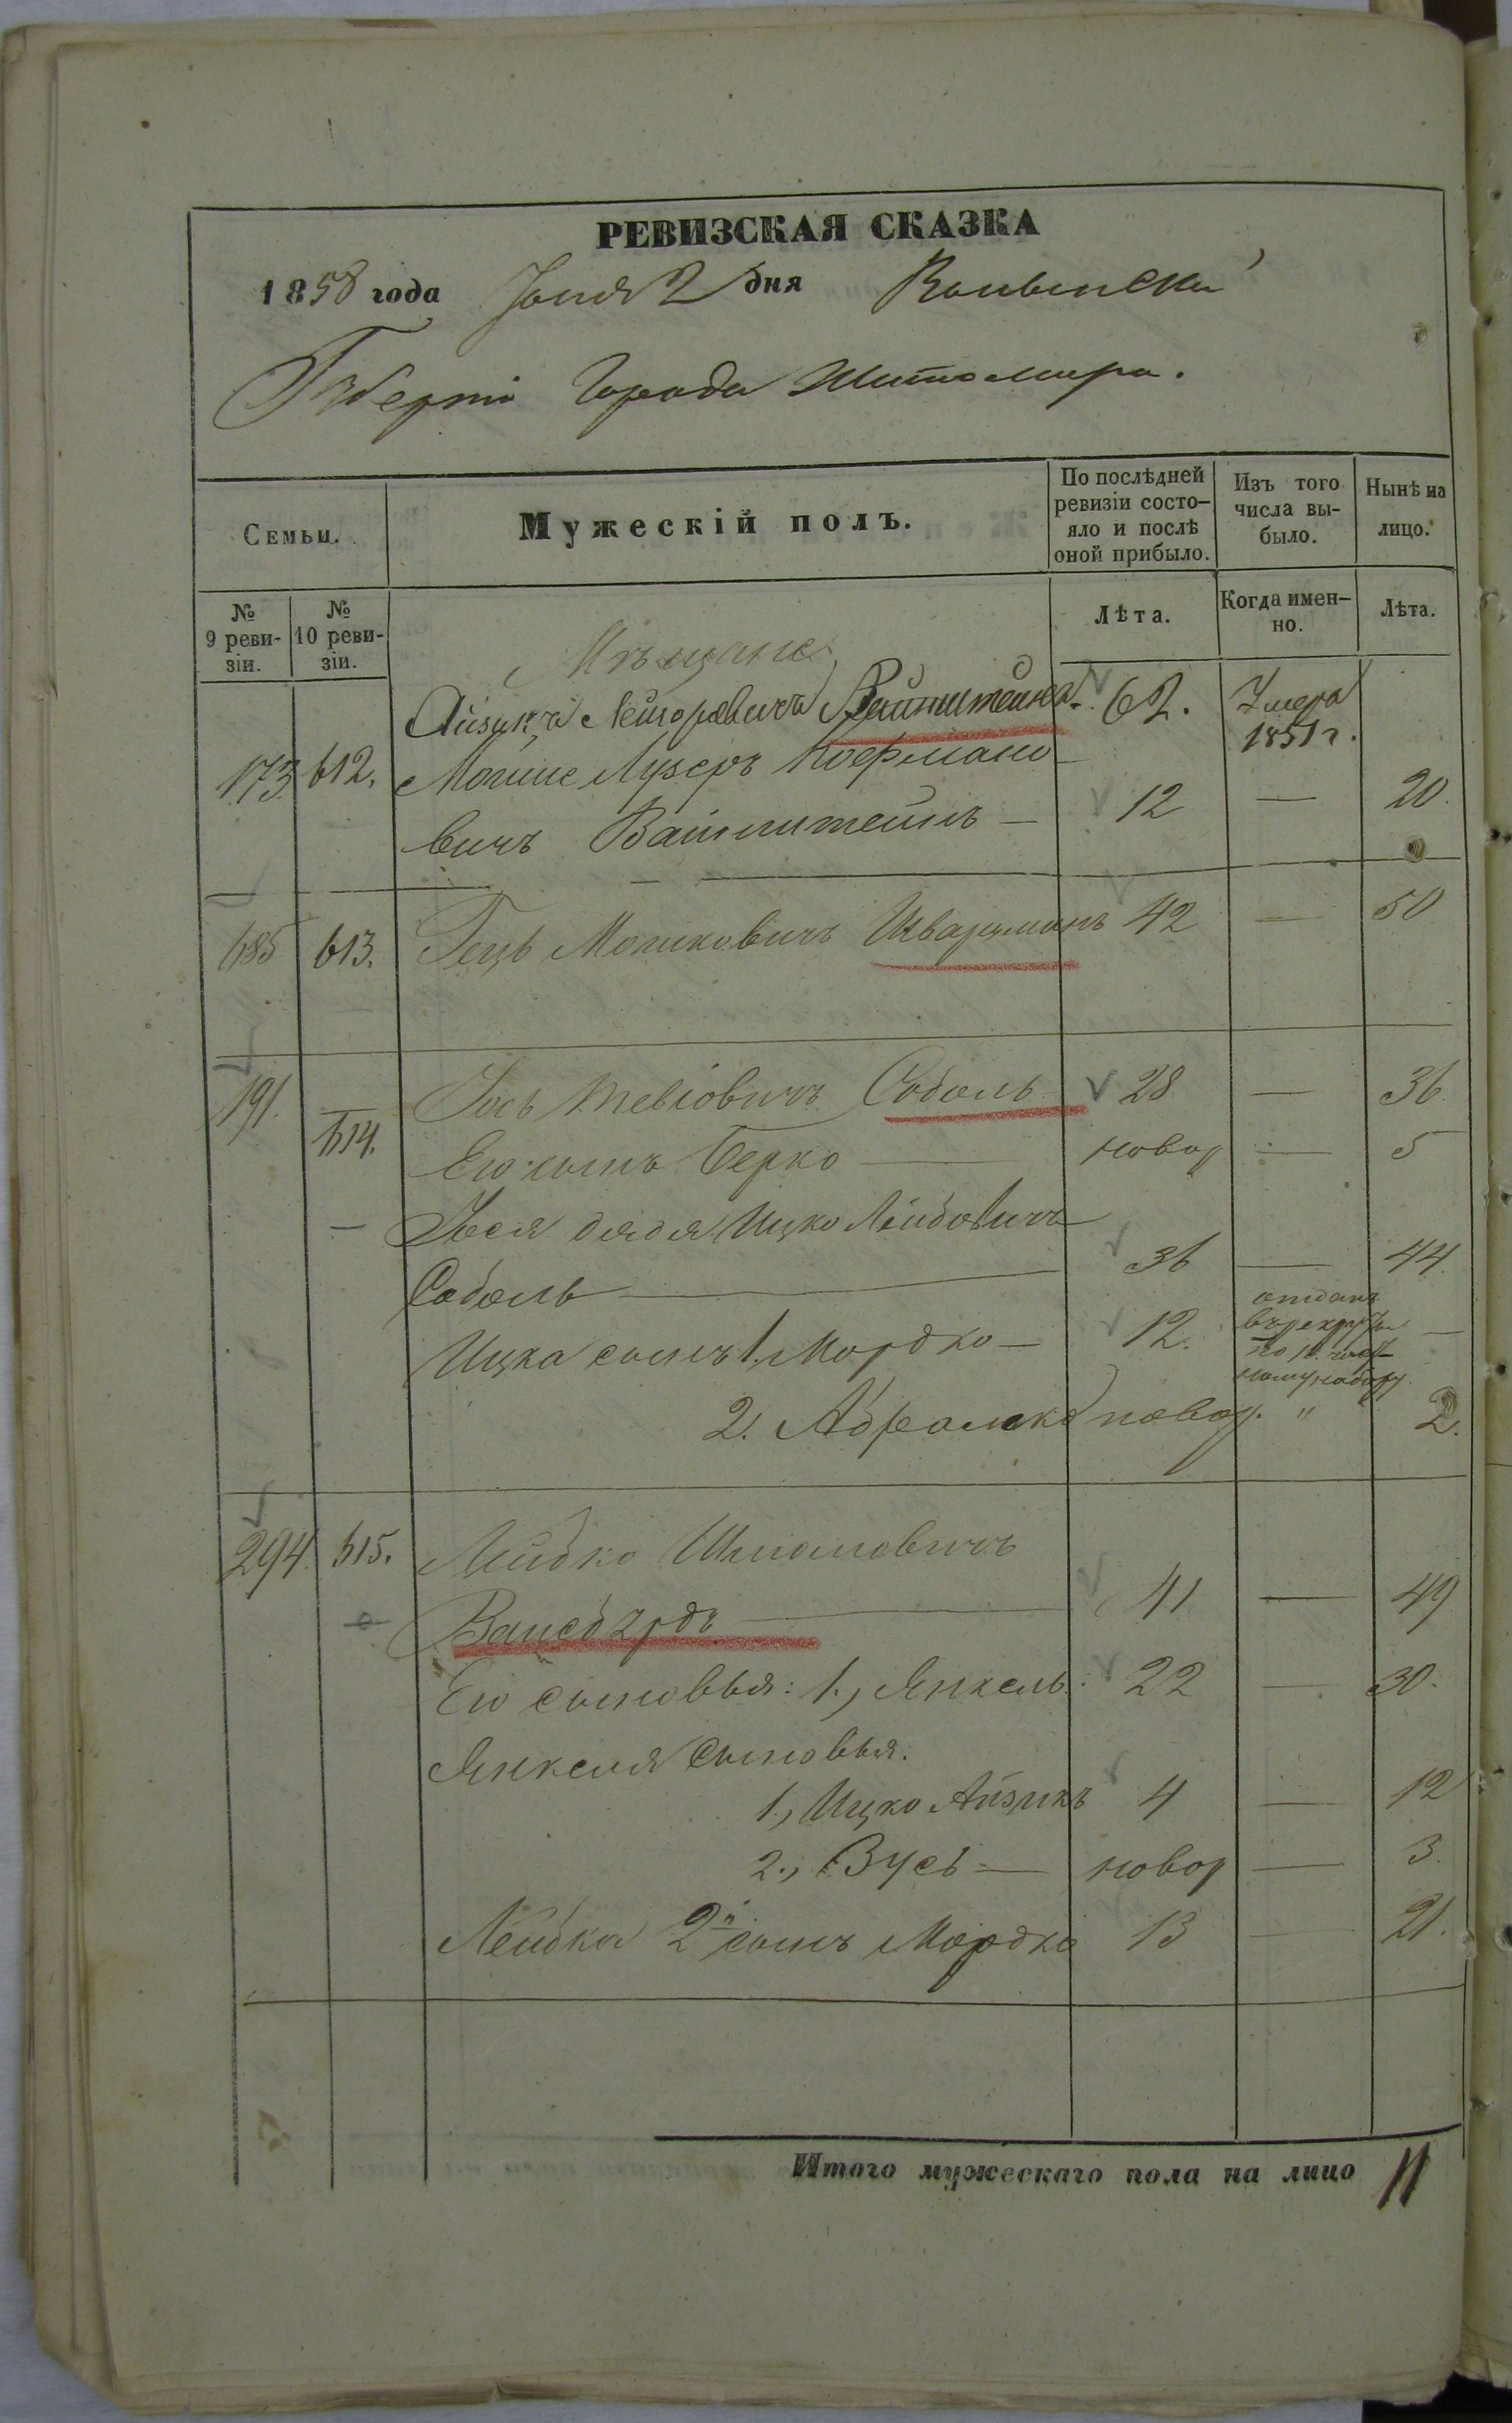 РЕВИЗСКАЯ СКАЗКА
1858 года Іюня 2 дня Волынской
Губерніи Города Житомира.
Семьи.
Мужескій полъ.
По послѣдней ревизіи состо-
яло и послѣ
оной прибыло.
Изъ того
числа вы-
было.
Нынѣ на
лицо.
№
9 реви-
зіи.
№
10 реви-
зіи.
Лѣта.
Когда имен-
но.
Лѣта.
Мѣщане
Айзикъ Вайнштейнъ 62. Умеръ
1851 г.
173 612. Мошке Лузеръ Кофмано
вичъ Вайнштейнъ — 12 — 20.
185 613. Гецъ Мошковичъ Шварцманъ 42 — 50
191. 614. Іось Тевіовичъ Соболь 28 — 36.
Его сынъ Берко — новор — 5
Іося дядя Ицко Лейбовичъ
Соболь — 36 — 44.
Ицка сынъ 1. Мордко — 12. отданъ
въ рекруты —
2. Абрамко новор. " 2.
294. 615. Лейбко
Вайсбурдъ — 41 — 49
Его сыновья: 1., Янкель: 22 — 30.
Янкеля сыновья.
1., Ицко Айзикъ 4 — 12
2., Зусь — новор — 3.
Лейбка 2й сынъ Мордко 13 — 21.
Итого мужескаго пола на лицо 11